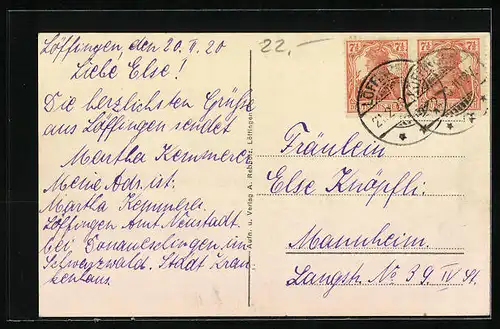 Löffingen, den 20. II. 20
Liebe Else!
Die herzlichsten Grüße
aus Löffingen sendet
Martha Kemmere
Meine Adr. ist:
Martha Kemmere
Löffingen Amt Neustadt
bei Donaueschingen im
Schwarzwald. Stadt Kran-
kenhaus.
22,-
7½ 7½ 7½ 7½
Aufn. u. Verlag A. Löffingen
Fräulein
Else Knöpfli
Mannheim.
Langstr. No 39 IV St.